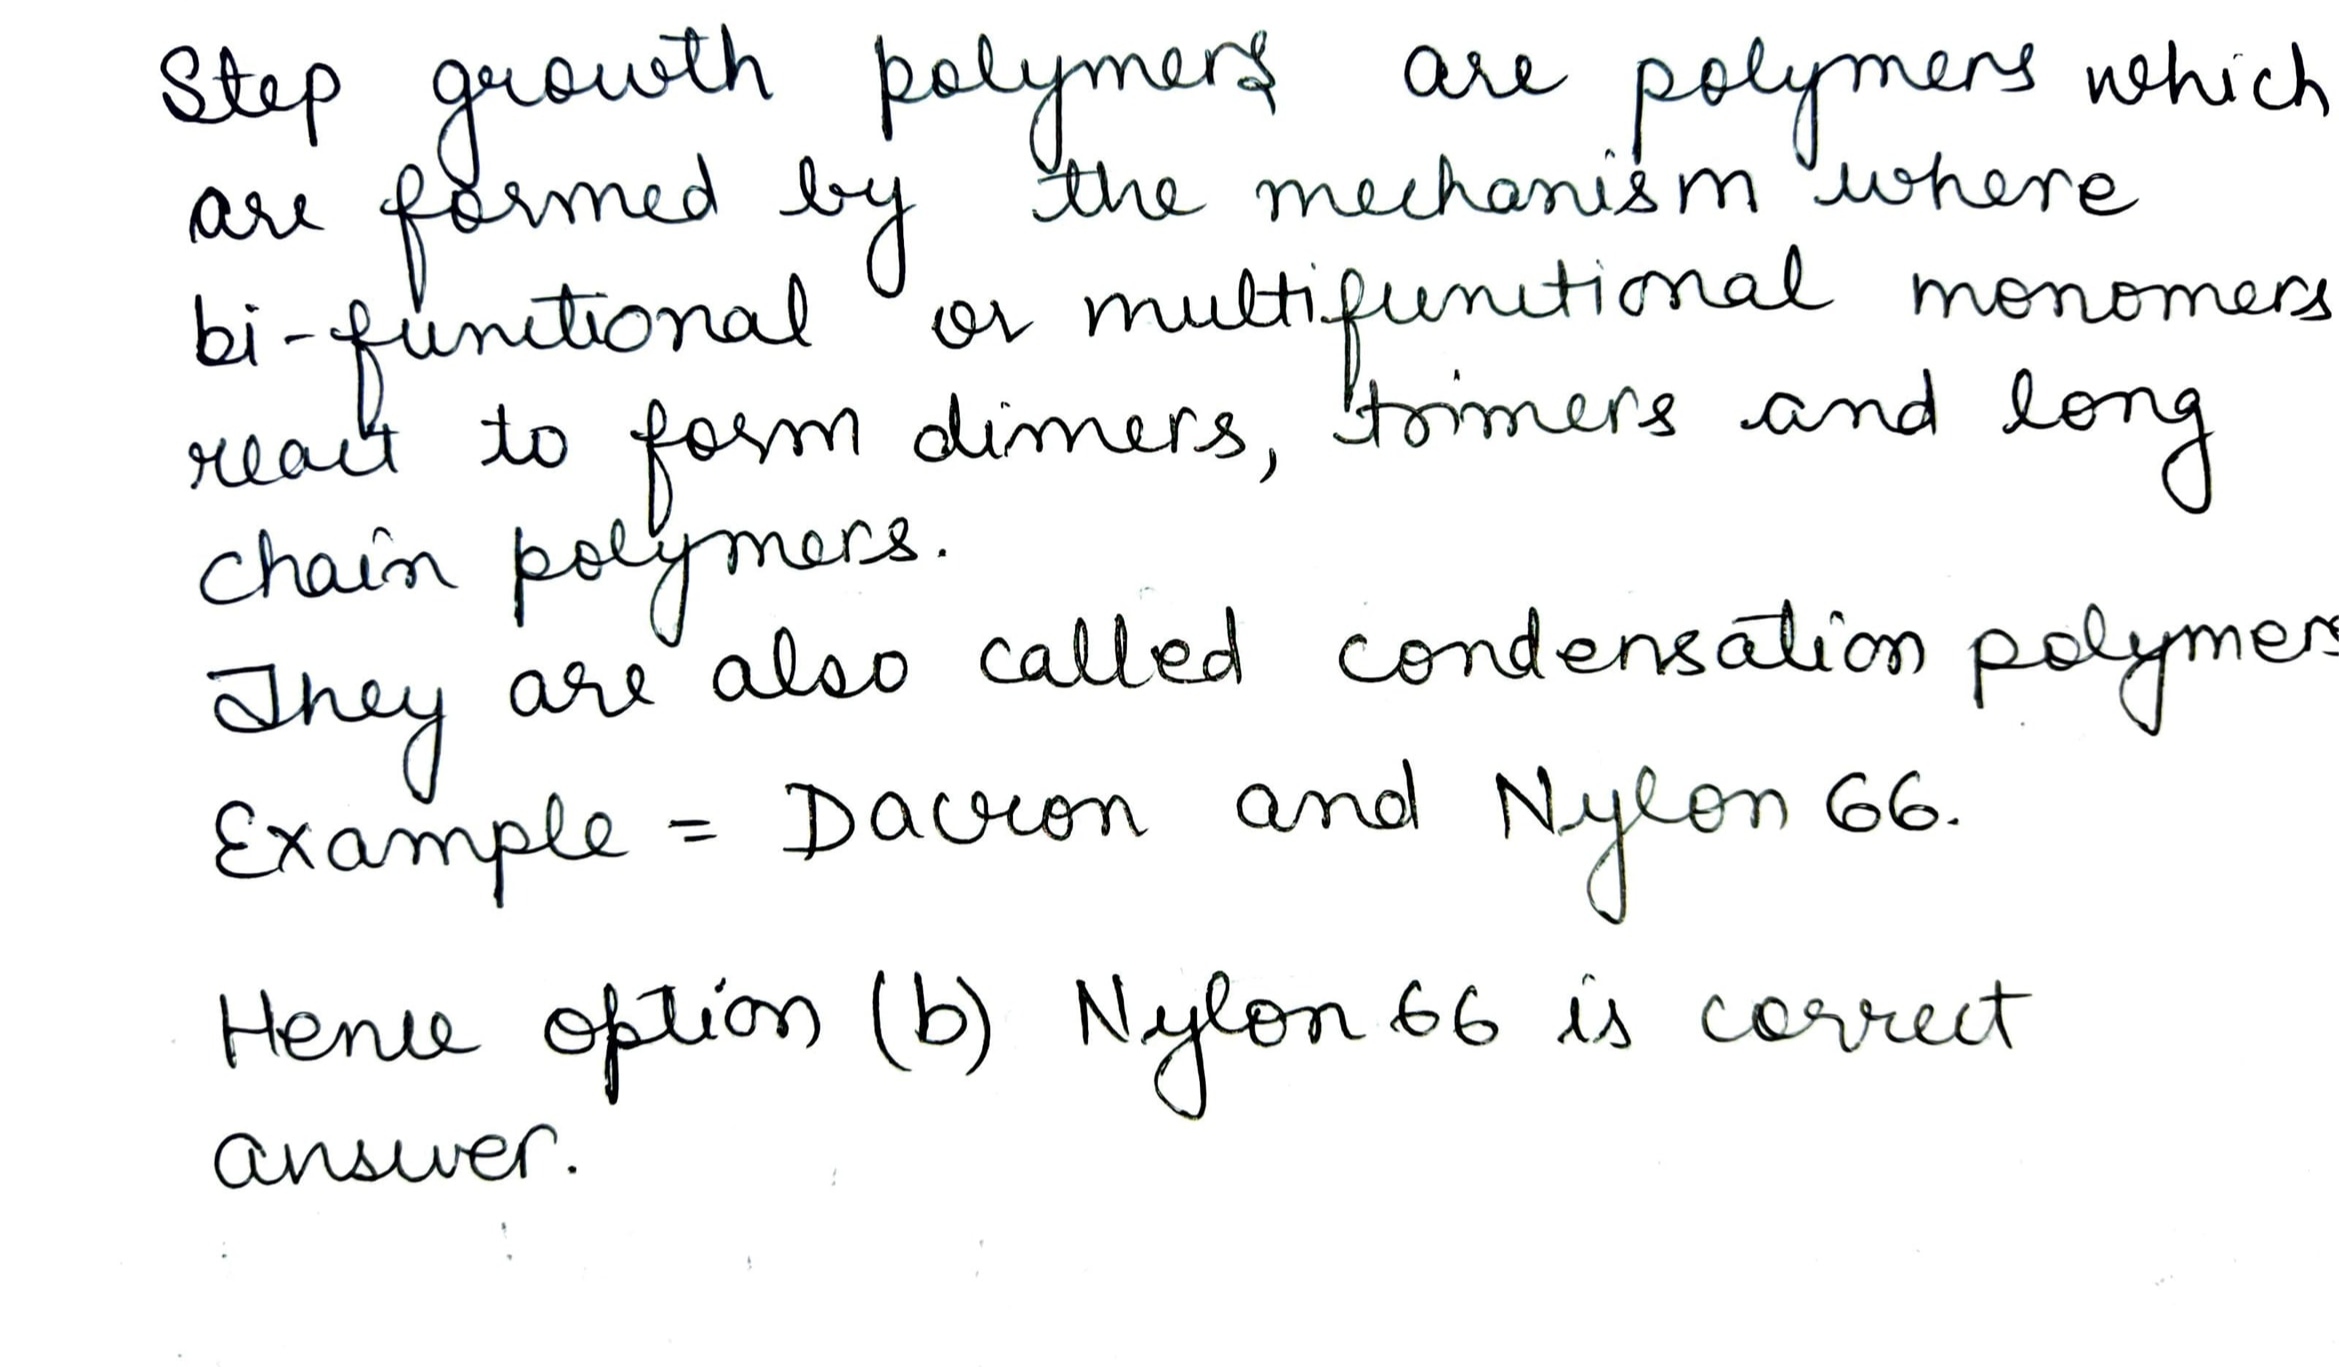 Step growth polymers are polymers which
are formed by the mechanism where
bi-functional or multifunctional monomers
react to form dimers, trimers and long
chain polymers.
They are also called condensation polymers
Example = Dacron and Nylon 66.
Hence option (b) Nylon 66 is correct
answer.